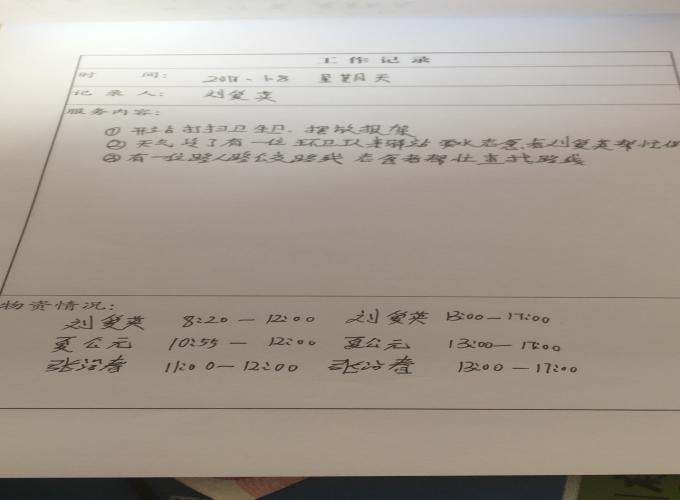 工作记录
时 间： 2018-1-8 星期天
记录人： 刘爱英
服务内容：
① 开站打扫卫生卫，摆放报架
② 天气 了有一位环卫 来驿站 水志愿者刘爱英帮忙
③ 有一位路人路 路线 志愿者帮忙查找路线
物资情况：
刘爱英 8:20 — 12:00 刘爱英 13:00 — 17:00
夏公元 10:55 — 12:00 夏公元 13:00 — 17:00
张治春 11:00 — 12:00 张治春 13:00 — 17:00